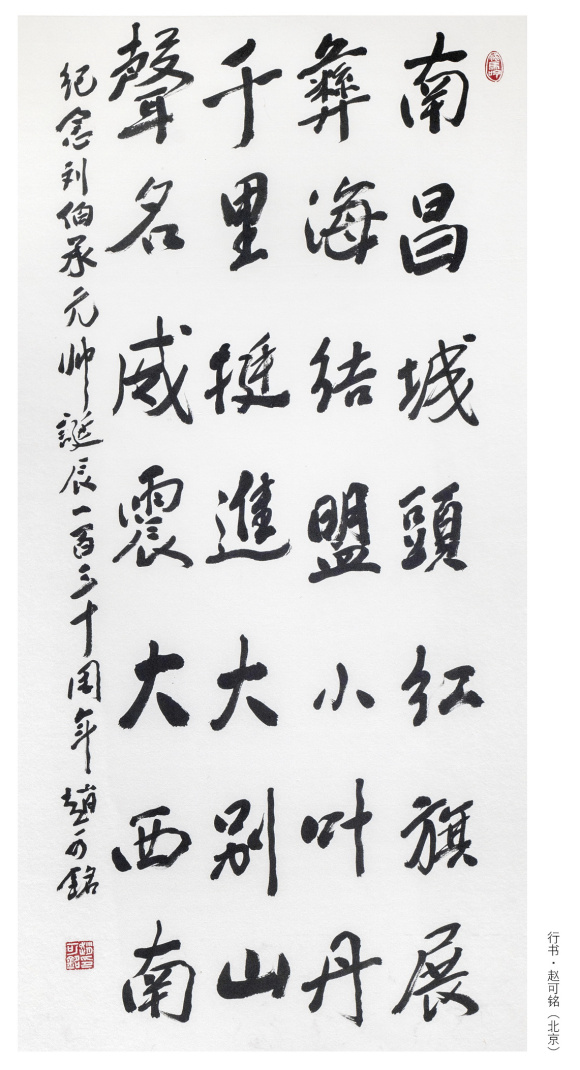 南昌城頭红旗展
彝海结盟小叶丹
千里挺進大别山
聲名威震大西南
纪念刘伯承元帅誕辰一百三十周年 趙可銘
行书·赵可铭（北京）